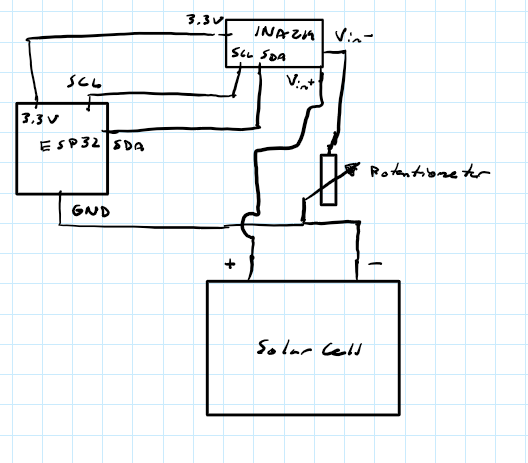 3.3V
INA219
Vin-
SCL SDA
SCL
Vin+
3.3V
ESP32
SDA
Potentiometer
GND
+
-
Solar Cell